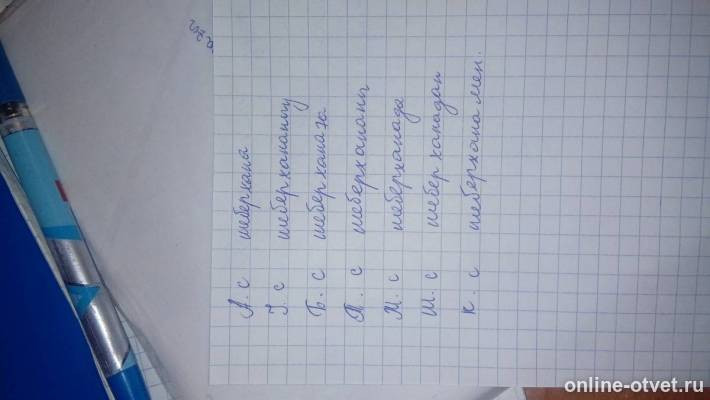 А. с шеберхана
І. с шеберхананың
Б. с шеберханаға
Т. с шеберхананы
Ж. с шеберханада
Ш. с шеберханадан
К. с шеберхана мен.
online-otvet.ru